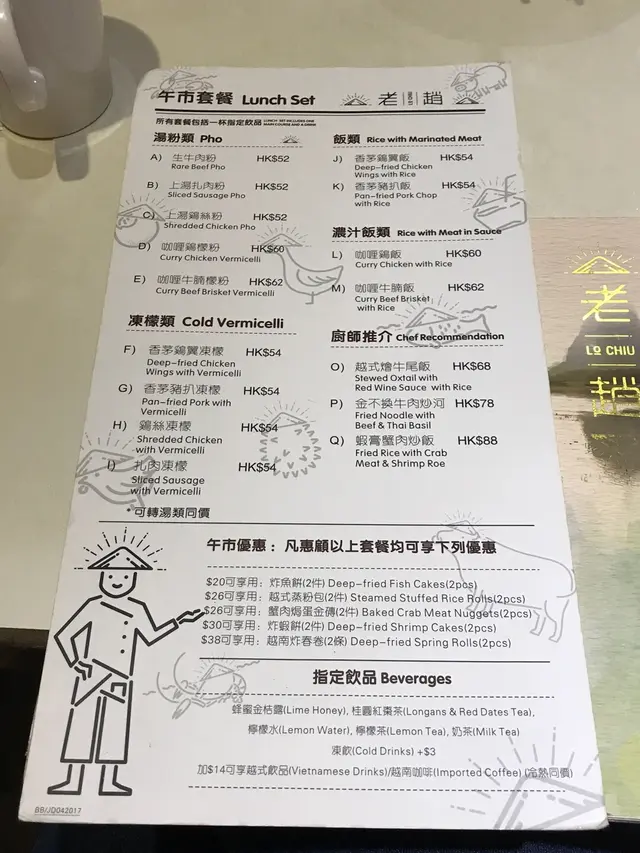 午市套餐 Lunch Set
老趙
所有套餐包括一杯指定飲品 LUNCH SET INCLUDES ONE MAIN COURSE AND A DRINK
湯粉類 Pho
A) 生牛肉粉 HK$52
Rare Beef Pho
B) 上湯扎肉粉 HK$52
Sliced Sausage Pho
C) 上湯鷄絲粉 HK$52
Shredded Chicken Pho
D) 咖喱鷄檬粉 HK$60
Curry Chicken Vermicelli
E) 咖喱牛腩檬粉 HK$62
Curry Beef Brisket Vermicelli
凍檬類 Cold Vermicelli
F) 香茅鷄翼凍檬 HK$54
Deep-fried Chicken
Wings with Vermicelli
G) 香茅豬扒凍檬 HK$54
Pan-fried Pork with
Vermicelli
H) 鷄絲凍檬 HK$54
Shredded Chicken
with Vermicelli
I) 扎肉凍檬 HK$54
Sliced Sausage
with Vermicelli
*可轉湯類同價
飯類 Rice with Marinated Meat
J) 香茅鷄翼飯 HK$54
Deep-fried Chicken
Wings with Rice
K) 香茅豬扒飯 HK$54
Pan-fried Pork Chop
with Rice
濃汁飯類 Rice with Meat in Sauce
L) 咖喱鷄飯 HK$60
Curry Chicken with Rice
M) 咖喱牛腩飯 HK$62
Curry Beef Brisket
with Rice
廚師推介 Chef Recommendation
O) 越式燴牛尾飯 HK$68
Stewed Oxtail with
Red Wine Sauce with Rice
P) 金不換牛肉炒河 HK$78
Fried Noodle with
Beef & Thai Basil
Q) 蝦膏蟹肉炒飯 HK$88
Fried Rice with Crab
Meat & Shrimp Roe
午市優惠：凡惠顧以上套餐均可享下列優惠
$20可享用：炸魚餅(2件) Deep-fried Fish Cakes(2pcs)
$26可享用：越式蒸粉包(2件) Steamed Stuffed Rice Rolls(2pcs)
$26可享用：蟹肉焗蛋金磚(2件) Baked Crab Meat Nuggets(2pcs)
$30可享用：炸蝦餅(2件) Deep-fried Shrimp Cakes(2pcs)
$38可享用：越南炸春卷(2條) Deep-fried Spring Rolls(2pcs)
指定飲品 Beverages
蜂蜜金桔露(Lime Honey), 桂圓紅棗茶(Longans & Red Dates Tea),
檸檬水(Lemon Water), 檸檬茶(Lemon Tea), 奶茶(Milk Tea)
凍飲(Cold Drinks) +$3
加$14可享越式飲品(Vietnamese Drinks)/越南咖啡(Imported Coffee) (冷熱同價)
BB/JD042017
老
LO CHIU
趙